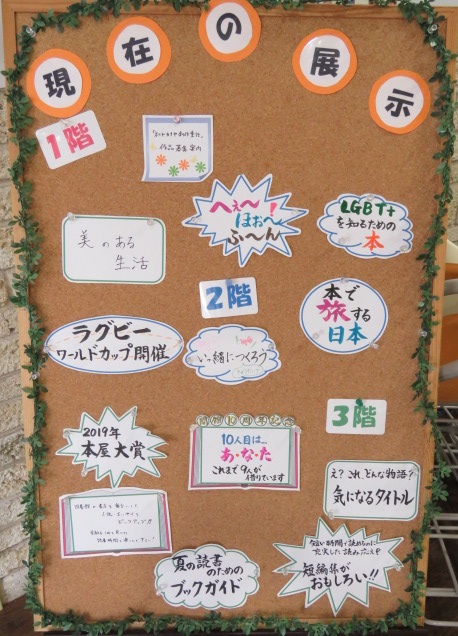 現在の展示
1階
作品募集案内
美のある
生活
へぇ〜!
ほぉ〜
ふ〜ん
LGBT+
を知るための
本
2階
ラグビー
ワールドカップ開催
いっ緒につくろう
本で
旅する
日本
3階
2019年
本屋大賞
10周年記念
10人目は…
あ・な・た
これまで9人が
借りています
え?これ、どんな物語?
気になるタイトル
夏の読書
のための
ブックガイド
短い時間で読めるのに
充実した読みごたえ
短編集が
おもしろい!!